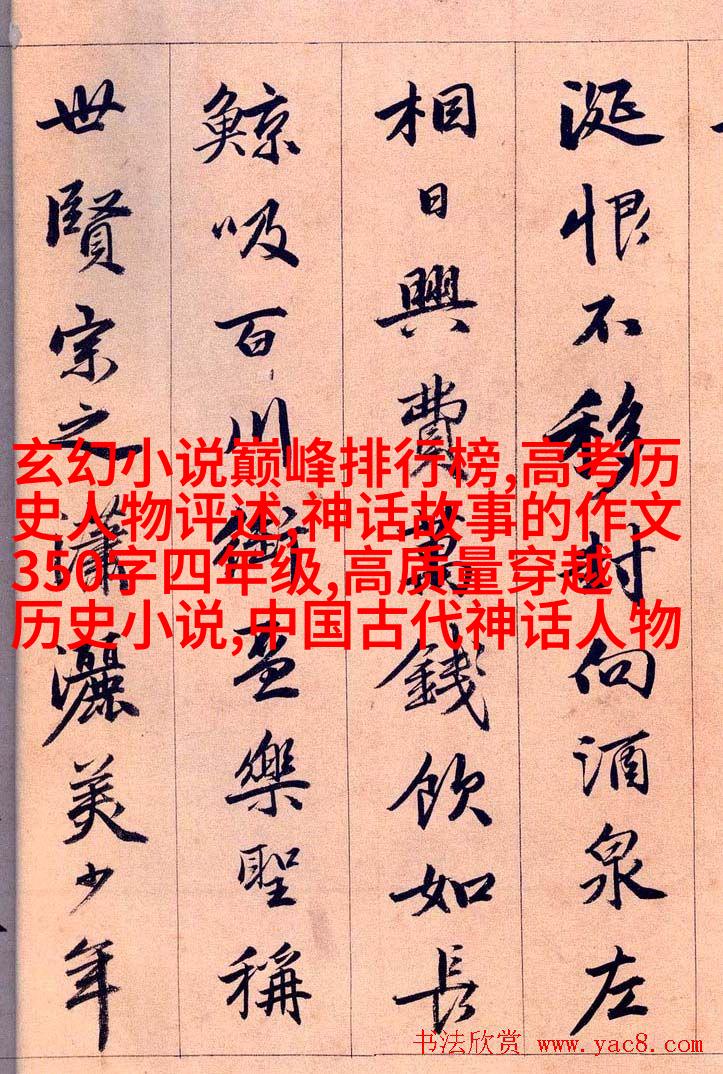 涎恨不移封向酒泉左
相日興費萬錢飲如長
鯨吸百川銜盃樂聖稱
世賢宗之瀟灑美少年
玄幻小说巅峰排行榜,高考历
史人物评述,神话故事的作文
350字四年级,高质量穿越
历史小说,中国古代神话人物
书法欣赏 www.yac8.com